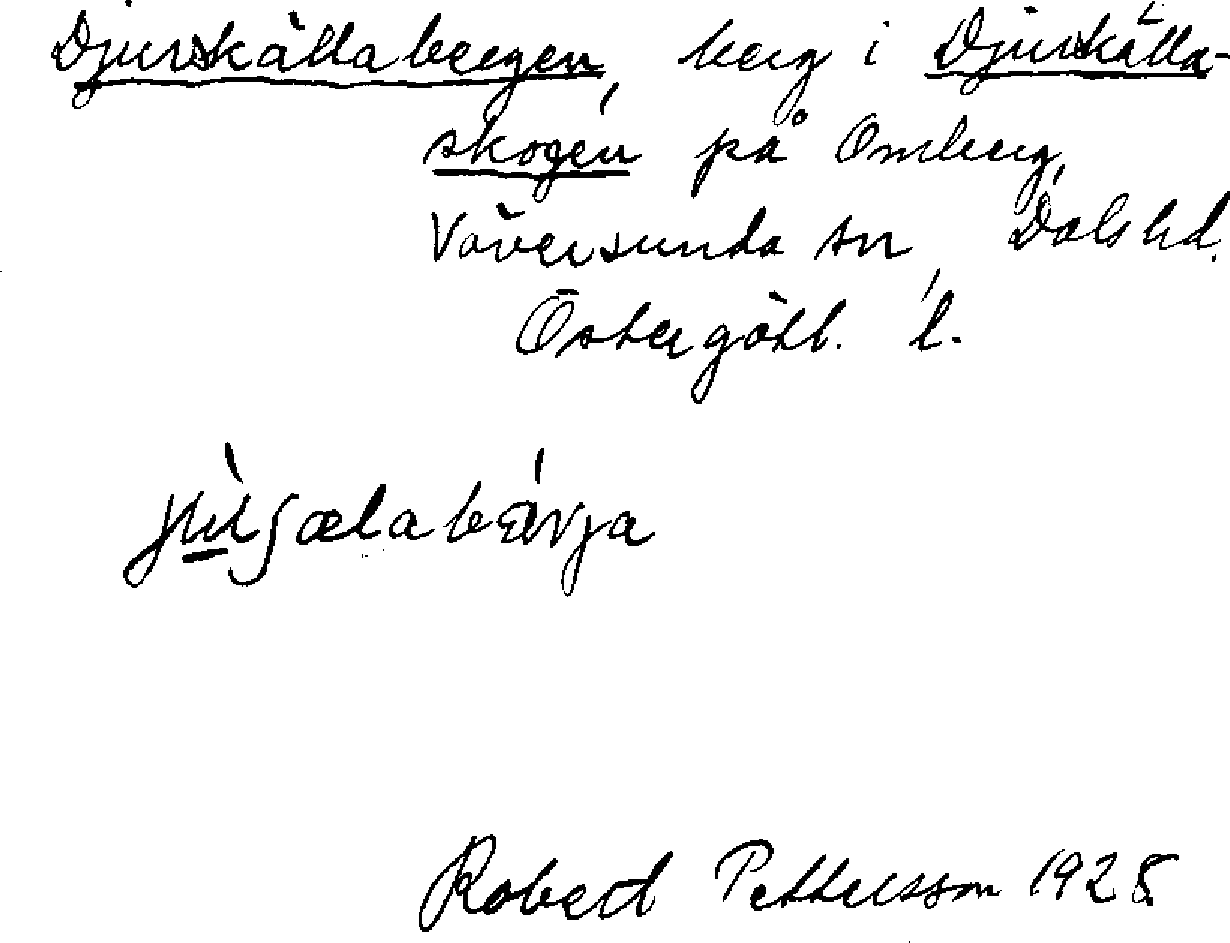 Djurskällabergen, berg i Djurkälla-
skogen på Omberg,
Väversunda sn, Dals hd.
Östergötl. l.
Robert Pettersson 1925